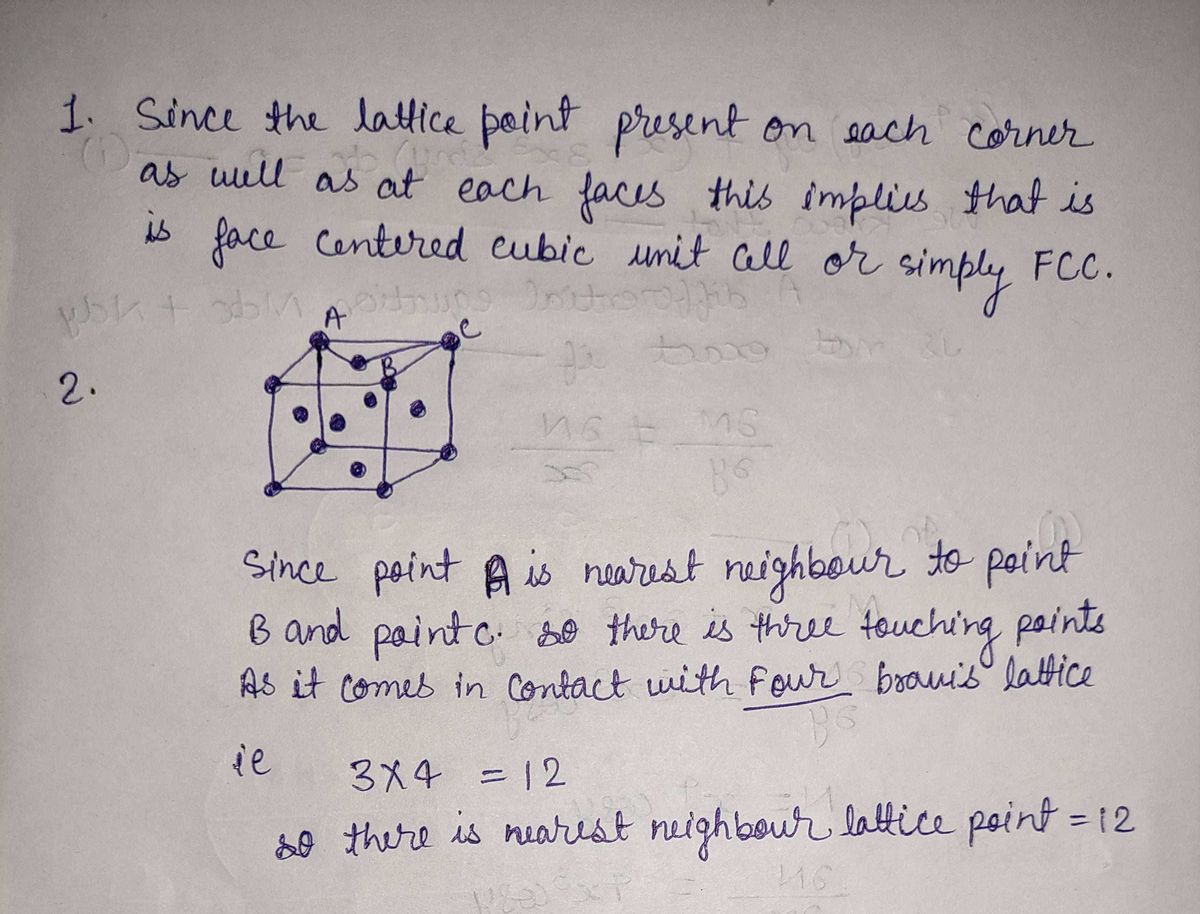 1. Since the lattice point present on each corner
as well as at each faces this implies that is
is face centered cubic unit cell or simply FCC.
A
C
B
2.
Since point A is nearest neighbour to point
B and point c. so there is three touching points
As it comes in contact with Four bravis lattice
ie 3X4 = 12
so there is nearest neighbour lattice point = 12